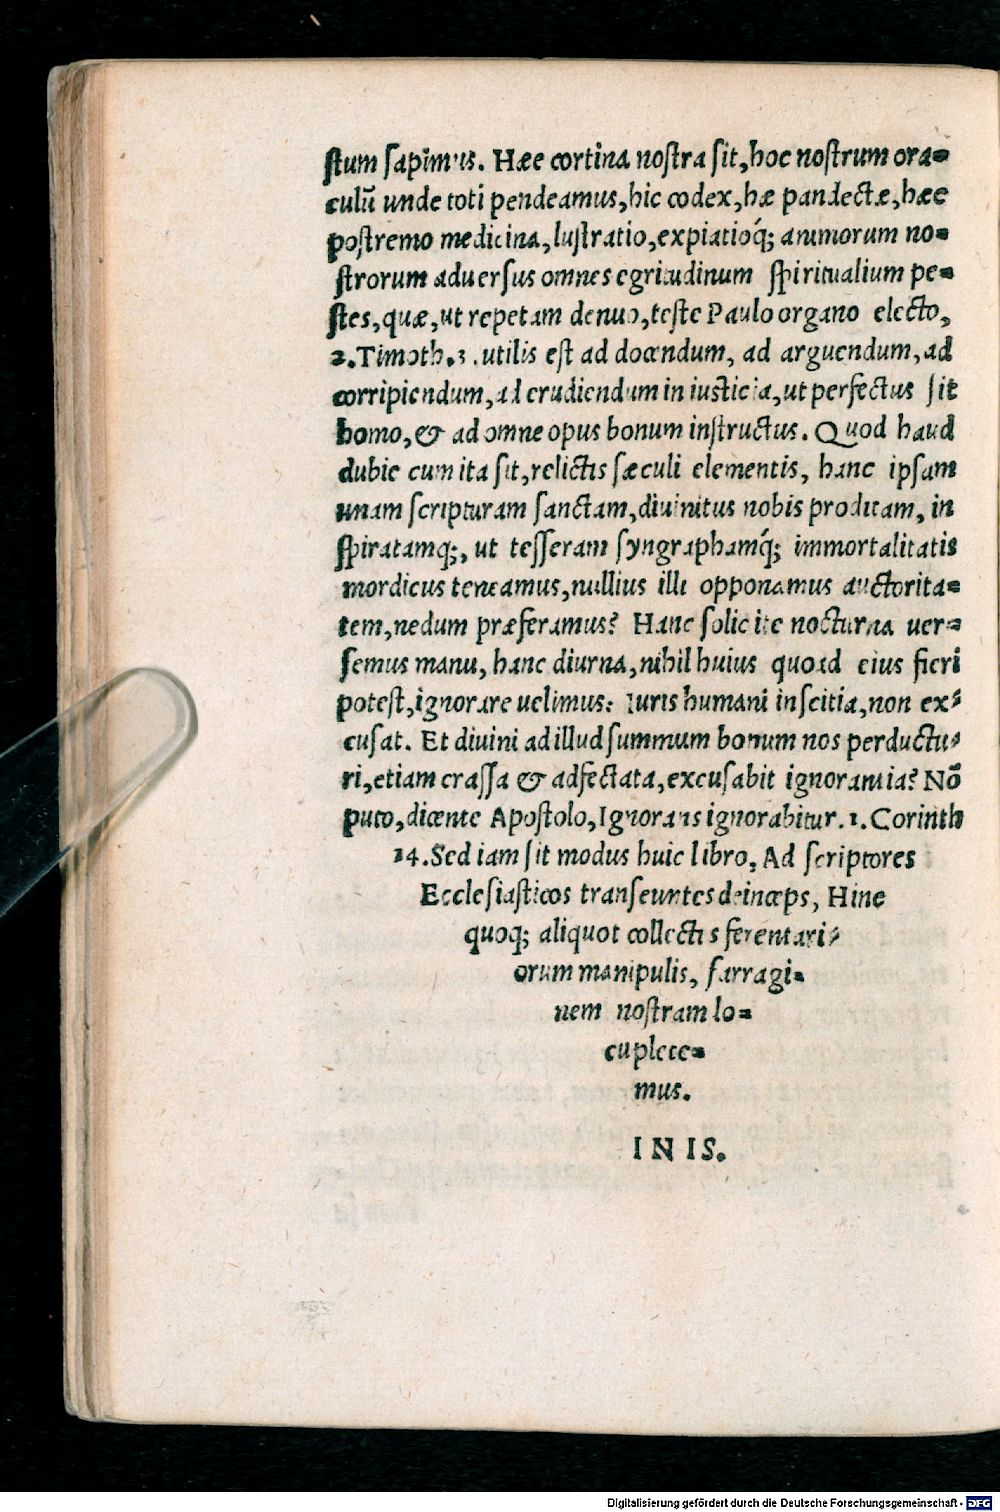 stum sapimus. Hæc cortina nostra sit, hoc nostrum ora=
culũ unde toti pendeamus, hic codex, hæ pandectæ, hæc
postremo medicina, lustratio, expiatioq́; animorum no=
strorum aduersus omnes egritudinum spiritualium pe=
stes, quæ, ut repetam denuo, teste Paulo organo electo,
2. Timoth. 3. utilis est ad docendum, ad arguendum, ad
corripiendum, ad erudiendum in iusticia, ut perfectus sit
homo, & ad omne opus bonum instructus. Quod haud
dubie cum ita sit, relictis sæculi elementis, hanc ipsam
unam scripturam sanctam, diuinitus nobis proditam, in
spiratamq;, ut tesseram syngraphamq́; immortalitatis
mordicus teneamus, nullius illi opponamus auctorita=
tem, nedum præferamus? Hanc solicite nocturna uer=
semus manu, hanc diurna, nihil huius quoad eius fieri
potest, ignorare uelimus: Iuris humani inscitia, non ex=
cusat. Et diuini ad illud summum bonum nos perductu=
ri, etiam crassa & adfectata, excusabit ignorantia? Nõ
puto, dicente Apostolo, Ignorans ignorabitur. 1. Corinth
14. Sed iam sit modus huic libro, Ad scriptores
Ecclesiasticos transeuntes deinceps, Hinc
quoq; aliquot collectis ferentari=
orum manipulis, farragi=
nem nostram lo=
cuplete=
mus.
INIS.
Digitalisierung gefördert durch die Deutsche Forschungsgemeinschaft - DFG